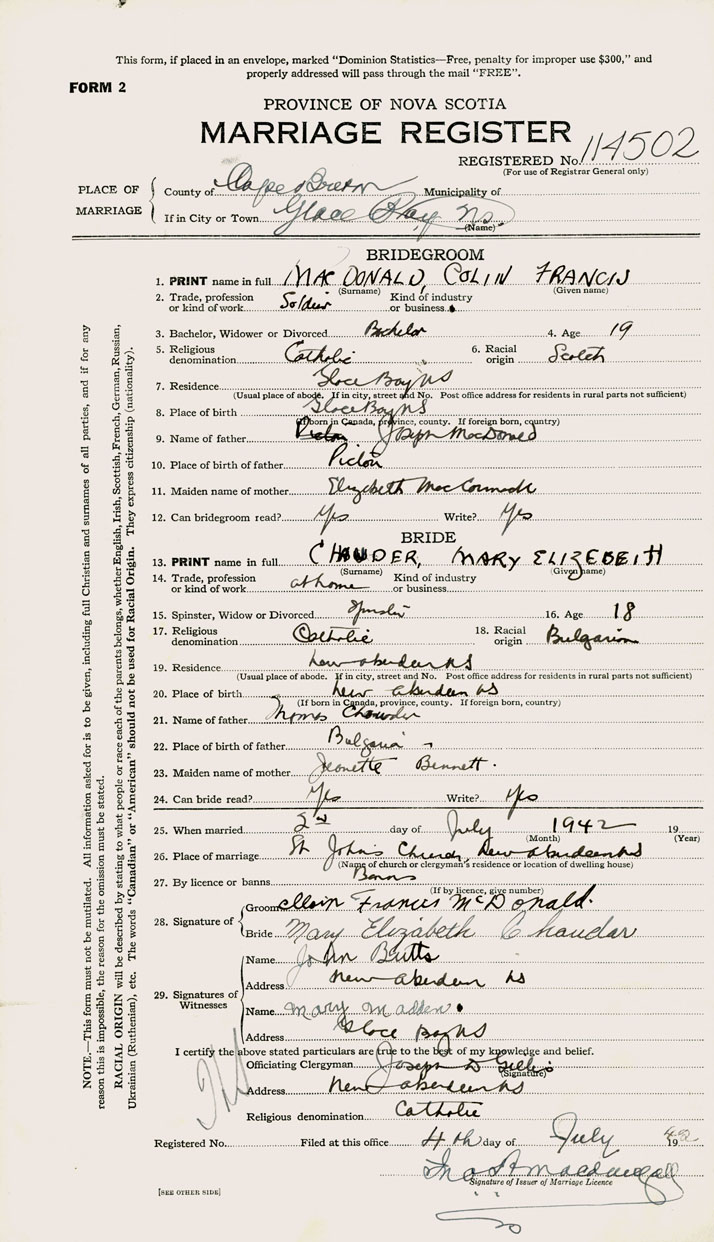 This form, if placed in an envelope, marked "Dominion Statistics—Free, penalty for improper use $300," and
properly addressed will pass through the mail "FREE".
FORM 2
PROVINCE OF NOVA SCOTIA
MARRIAGE REGISTER
REGISTERED No. 114502
(For use of Registrar General only)
PLACE OF MARRIAGE
County of Cape Breton Municipality of
If in City or Town Glace Bay Ns
(Name)
BRIDEGROOM
1. PRINT name in full MACDONALD, COLIN FRANCIS
(Surname) (Given name)
2. Trade, profession or kind of work Soldier Kind of industry or business
3. Bachelor, Widower or Divorced Bachelor 4. Age 19
5. Religious denomination Catholic 6. Racial origin Scotch
7. Residence Glace Bay NS
(Usual place of abode. If in city, street and No. Post office address for residents in rural parts not sufficient)
8. Place of birth Glace Bay NS
(If born in Canada, province, county. If foreign born, country)
9. Name of father Pictou Joseph MacDonald
10. Place of birth of father Pictou
11. Maiden name of mother Elizabeth MacCormack
12. Can bridegroom read? Yes Write? Yes
BRIDE
13. PRINT name in full CHAUDER, MARY ELIZEBEITH
(Surname) (Given name)
14. Trade, profession or kind of work at home Kind of industry or business
15. Spinster, Widow or Divorced Spinster 16. Age 18
17. Religious denomination Catholic 18. Racial origin Bulgarian
19. Residence New Aberdeen NS
(Usual place of abode. If in city, street and No. Post office address for residents in rural parts not sufficient)
20. Place of birth New Aberdeen NS
(If born in Canada, province, county. If foreign born, country)
21. Name of father Thomas Chowder
22. Place of birth of father Bulgaria
23. Maiden name of mother Jeanette Bennett.
24. Can bride read? Yes Write? Yes
25. When married 2nd day of July 1942 19
(Month) (Year)
26. Place of marriage St John's Church, New Aberdeen NS
(Name of church or clergyman's residence or location of dwelling house)
27. By licence or banns Banns
(If by licence, give number)
28. Signature of
Groom Francis McDonald.
Bride Mary Elizabeth Chaudar
29. Signatures of Witnesses
Name John Butts
Address New Aberdeen NS
Name Mary Madden
Address Glace Bay NS
I certify the above stated particulars are true to the best of my knowledge and belief.
Officiating Clergyman Joseph D Gillis
(Signature)
Address New Aberdeen NS
Religious denomination Catholic
Registered No. Filed at this office 4th day of July 1942
Macdougall
Signature of Issuer of Marriage Licence
[SEE OTHER SIDE]
NOTE.—This form must not be mutilated. All information asked for is to be given, including full Christian and surnames of all parties, and if for any
reason this is impossible, the reason for the omission must be stated.
RACIAL ORIGIN will be described by stating to what people or race each of the parents belongs, whether English, Irish, Scottish, French, German, Russian,
Ukrainian (Ruthenian), etc. The words "Canadian" or "American" should not be used for Racial Origin. They express citizenship (nationality).